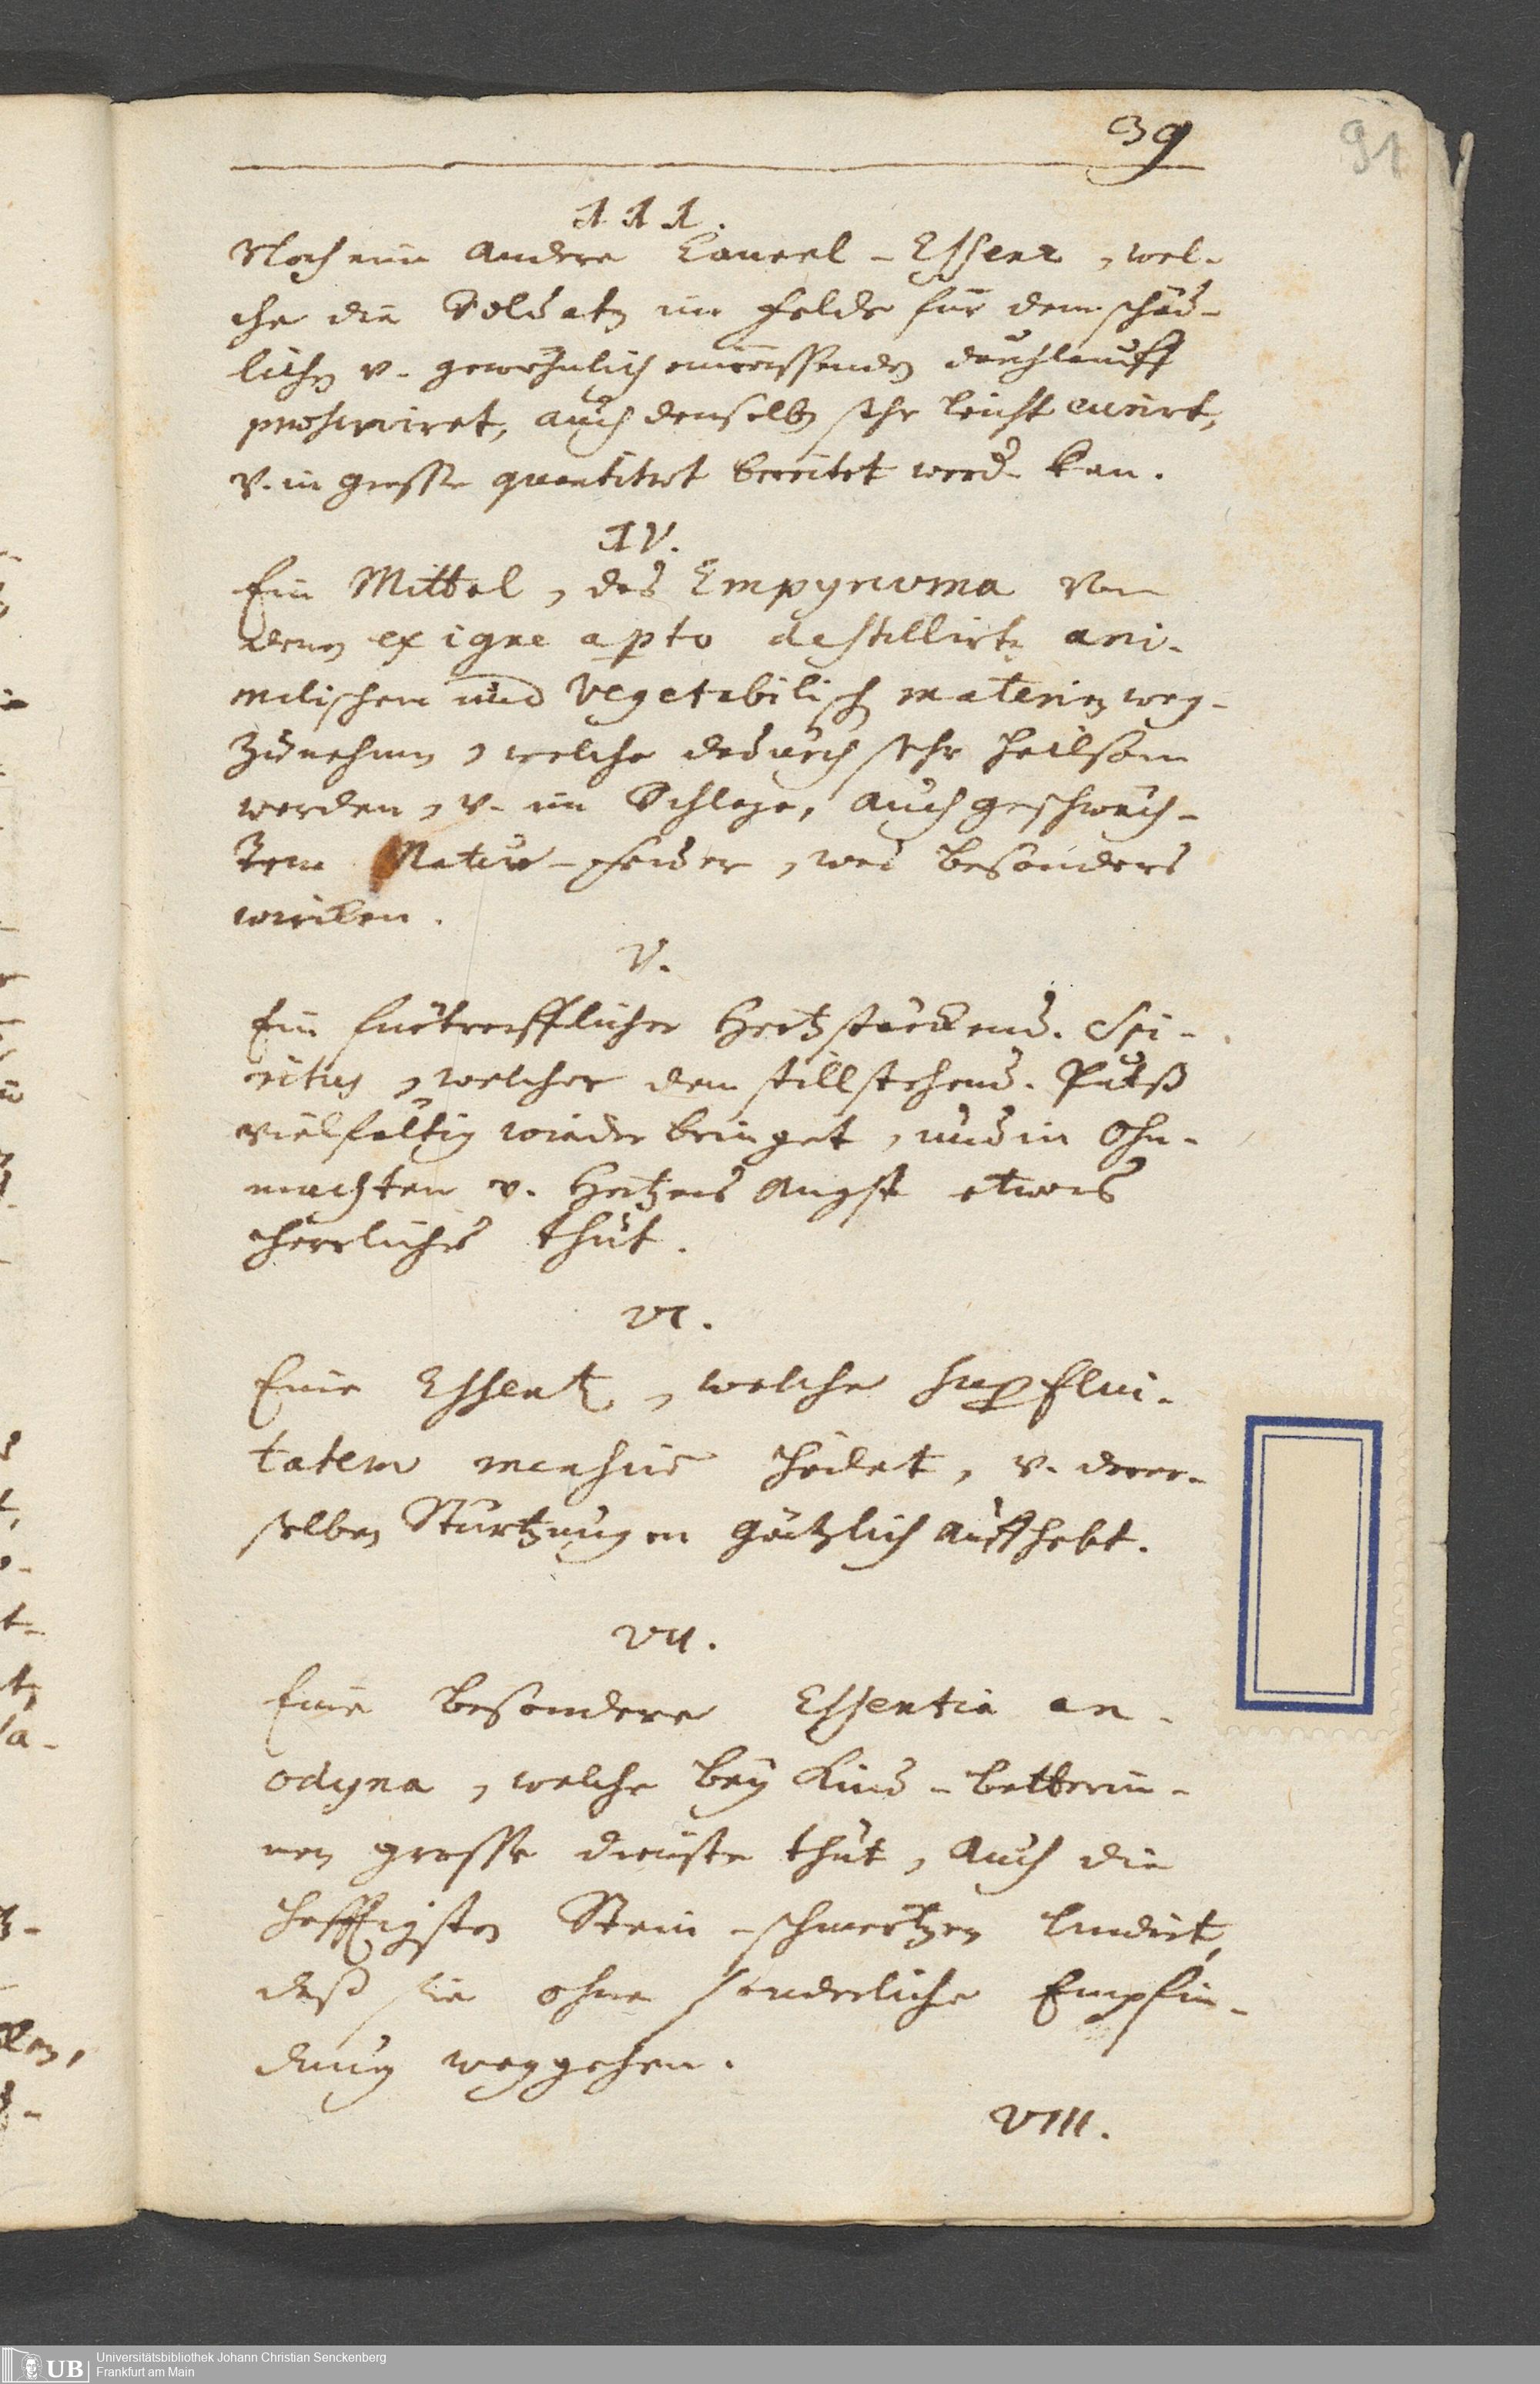 39
91
III.
Noch eine andere Caneel-Essenz, wel-
che die Soldatē im Felde für dem schäd-
lichē v. gewöhnlich einreissendē durchlauff
præserviret, auch denselbē sehr leicht curirt,
v. in grosse quantitæt bereitet werdē kan.
IV.
Ein Mittel, das Empyreuma von
denē ex igne apto destillirtē ani-
malischen und vegetabilischē materiē weg-
zunehmē, welche dadurch sehr heilsam
werden, v. im Schlage, auch geschwäch-
tem Natur-, was besonders
wircken.
V.
Ein fürtrefflicher Hertzstärckend. Spi-
ritus, welcher den stillstehend. Pulß
vielfältig wiederbringet, und in Ohn-
machten v. Hertzens Angst etwas
herrliches thut.
VI.
Eine Essentz, welche superflui-
tatem mensium heilet, v. derer-
selbē Stürtzungen gäntzlich auffhebt.
VII.
Eine besondere Essentia an-
odyna, welche bey Kind-betterin-
nen grosse dienste thut, auch die
hefftigsten Stein-schmertzen lindert,
daß sie ohne sonderliche Empfin-
dung weggehen.
VIII.
UB Universitätsbibliothek Johann Christian Senckenberg
Frankfurt am Main